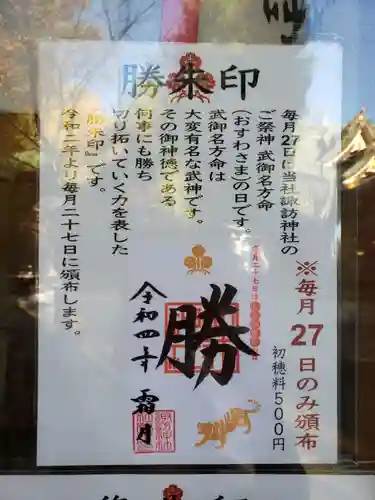 勝朱印
毎月27日は当社諏訪神社の
ご祭神 武御名方命
(おすわさま)の日です。
武御名方命は
大変有名な武神です。
その御神徳である
何事にも勝ち
切り拓いていく力を表した
『勝朱印』です。
令和二年より毎月二十七日に頒布します。
※毎月27日のみ頒布
初穂料500円
勝
令和四年 霜月